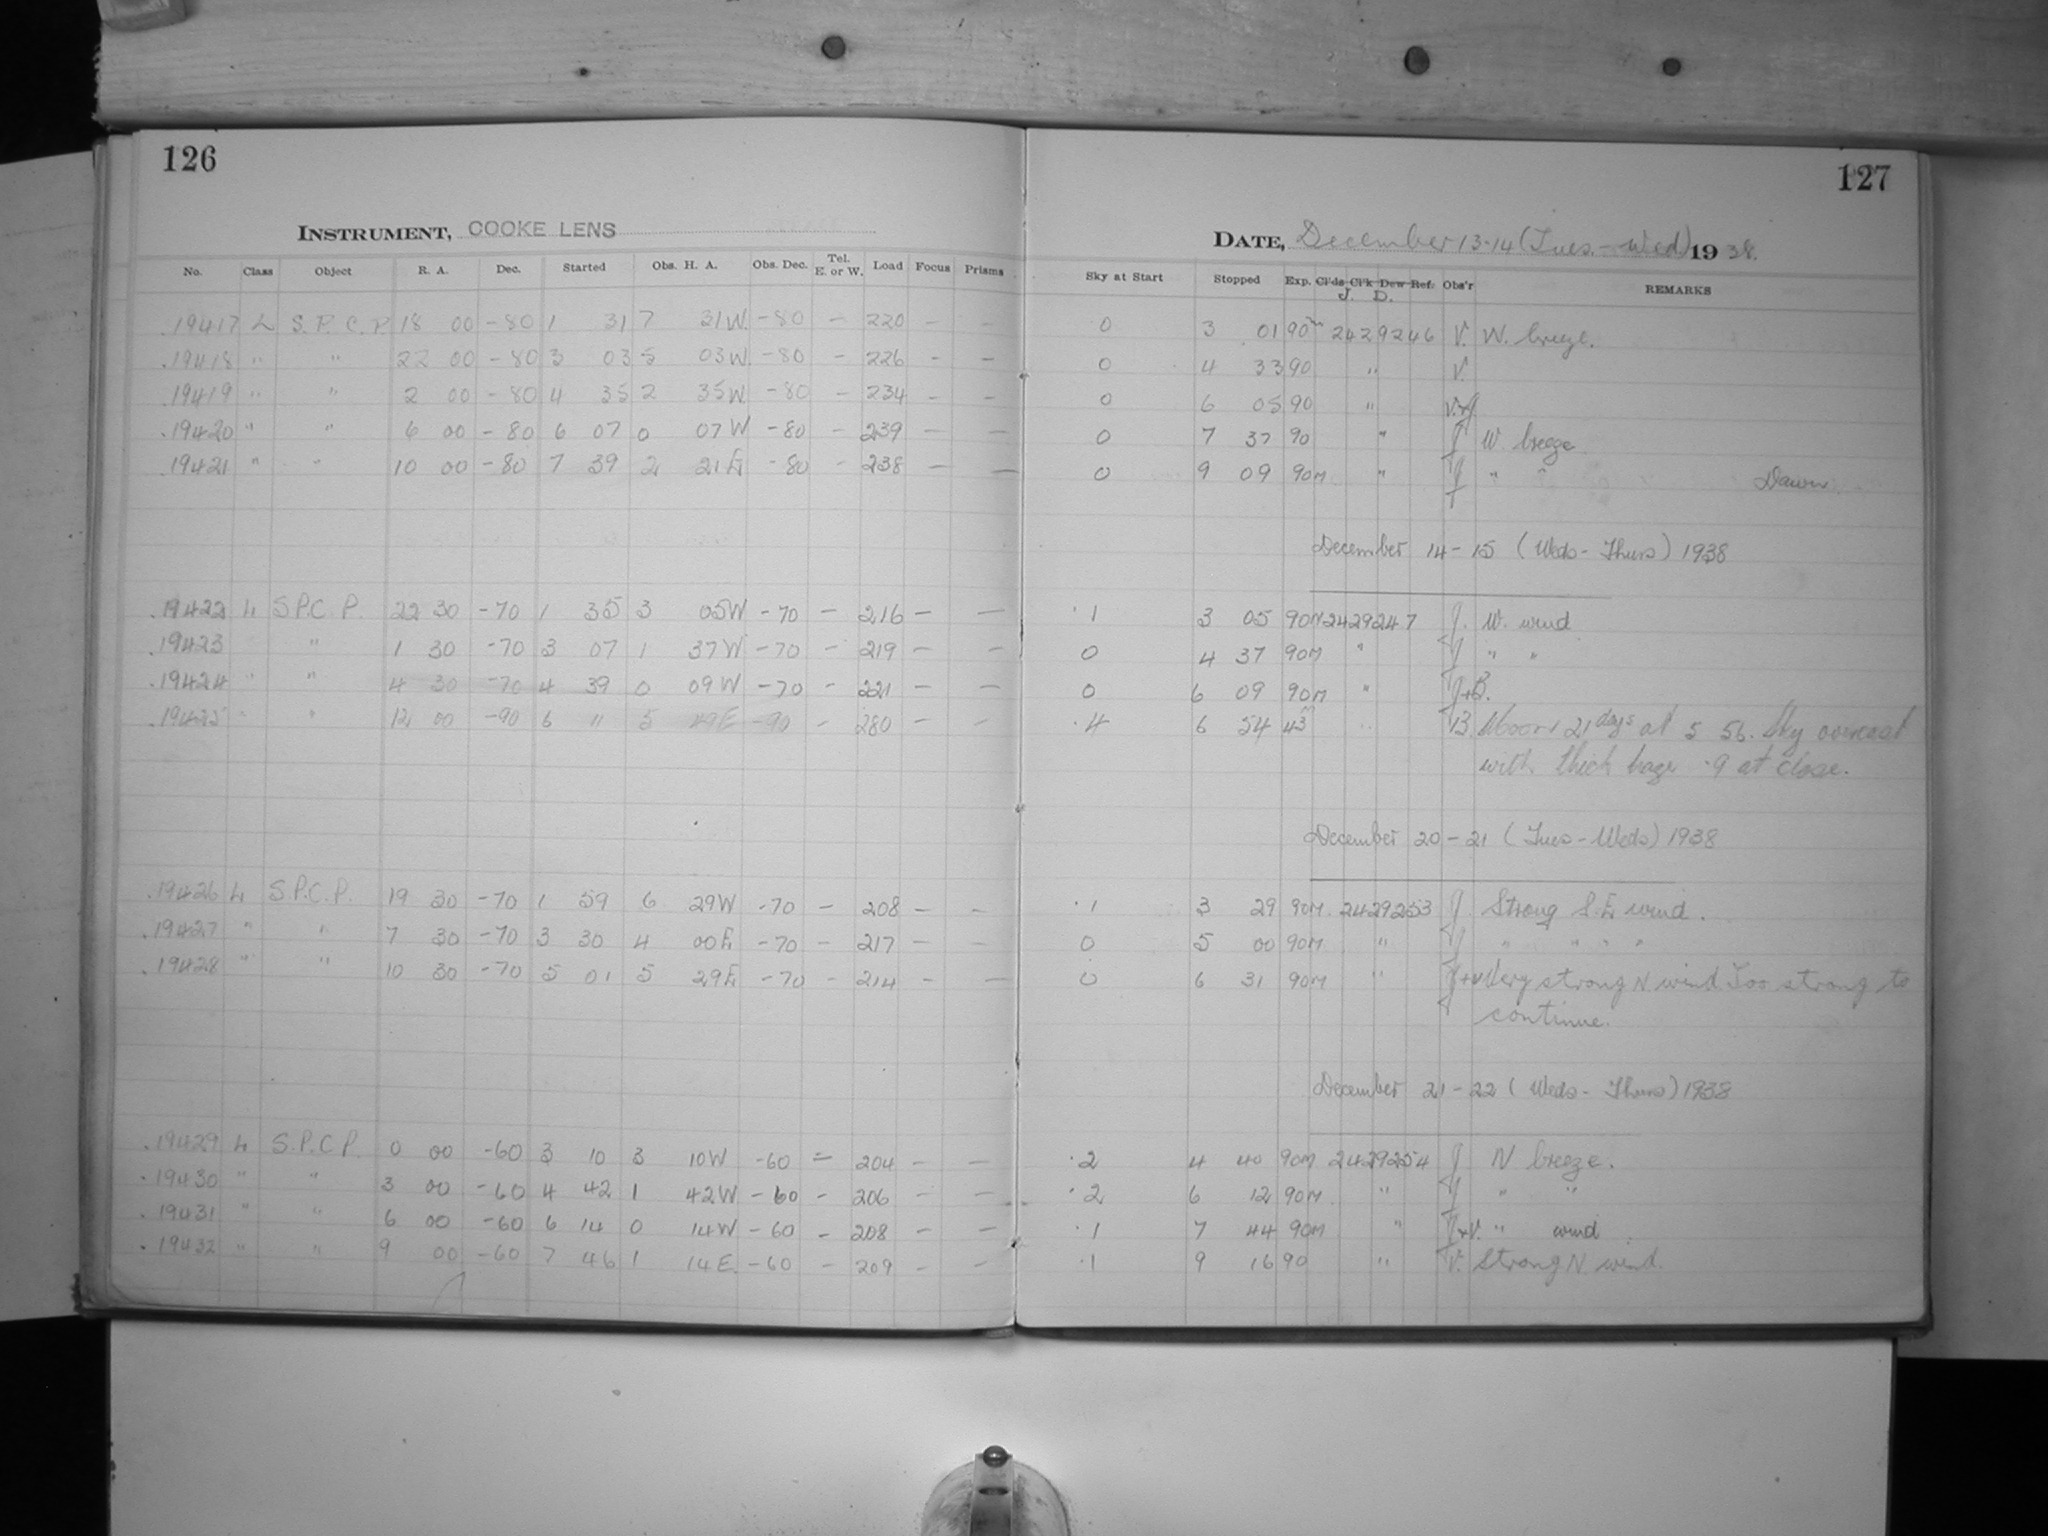 126
127
INSTRUMENT, COOKE LENS
DATE, December 13-14 (Tues.-Wed) 1938.
No. Class Object R. A. Dec. Started Obs. H. A. Obs. Dec. Tel. E. or W. Load Focus Prisms Sky at Start Stopped Exp. Cl'ds Cl'k Dew Ref. Obs'r REMARKS
J. D.
.19417 L S.P.C.P. 18 00 -80 1 31 7 31W. -80 - 220 - - 0 3 01 90m 2429246 V. W. breeze.
.19418 " " 22 00 -80 3 03 5 03W. -80 - 226 - - 0 4 33 90 " V.
.19419 " " 2 00 -80 4 35 2 35W -80 - 234 - - 0 6 05 90 " V.+J
.19420 " " 6 00 -80 6 07 0 07W -80 - 239 - - 0 7 37 90 " J W. breeze
.19421 " " 10 00 -80 7 39 2 21E -80 - 238 - - 0 9 09 90M " J " " Dawn.
December 14-15 (Weds-Thurs) 1938
.19422 L S.P.C.P. 22 30 -70 1 35 3 05W -70 - 216 - - .1 3 05 90M 2429247 J. W. wind
.19423 " 1 30 -70 3 07 1 37W -70 - 219 - - 0 4 37 90M " J " "
.19424 " " 4 30 -70 4 39 0 09W -70 - 221 - - 0 6 09 90M " J+B.
.19425 " " 12 00 -90 6 11 5 49E -90 - 280 - - .4 6 54 43m " B Moon 21 days at 5 56. Sky overcast
with thick haze .9 at close.
December 20-21 (Tues-Weds) 1938
.19426 L S.P.C.P. 19 30 -70 1 59 6 29W -70 - 208 - - .1 3 29 90M 2429253 J Strong S.E wind.
.19427 " " 7 30 -70 3 30 4 00E -70 - 217 - - 0 5 00 90M " J " " " "
.19428 " " 10 30 -70 5 01 5 29E -70 - 214 - - 0 6 31 90M " J+V Very strong N wind Too strong to
continue.
December 21-22 (Weds-Thurs) 1938
.19429 L S.P.C.P. 0 00 -60 3 10 3 10W -60 - 204 - - .2 4 40 90M 2429254 J N breeze.
.19430 " " 3 00 -60 4 42 1 42W -60 - 206 - - .2 6 12 90M " J " "
.19431 " " 6 00 -60 6 14 0 14W -60 - 208 - - .1 7 44 90M " J+V. " wind
.19432 " " 9 00 -60 7 46 1 14E. -60 - 209 - - .1 9 16 90 " V. Strong N. wind.